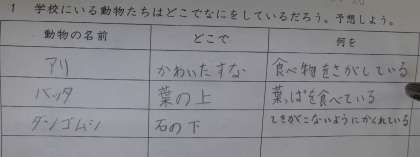 1 学校にいる動物たちはどこでなにをしているだろう。予想しよう。
動物の名前 どこで 何を
アリ かわいたすな 食べ物をさがしている
バッタ 葉の上 葉っぱを食べている
ダンゴムシ 石の下 てきがこないようにかくれている